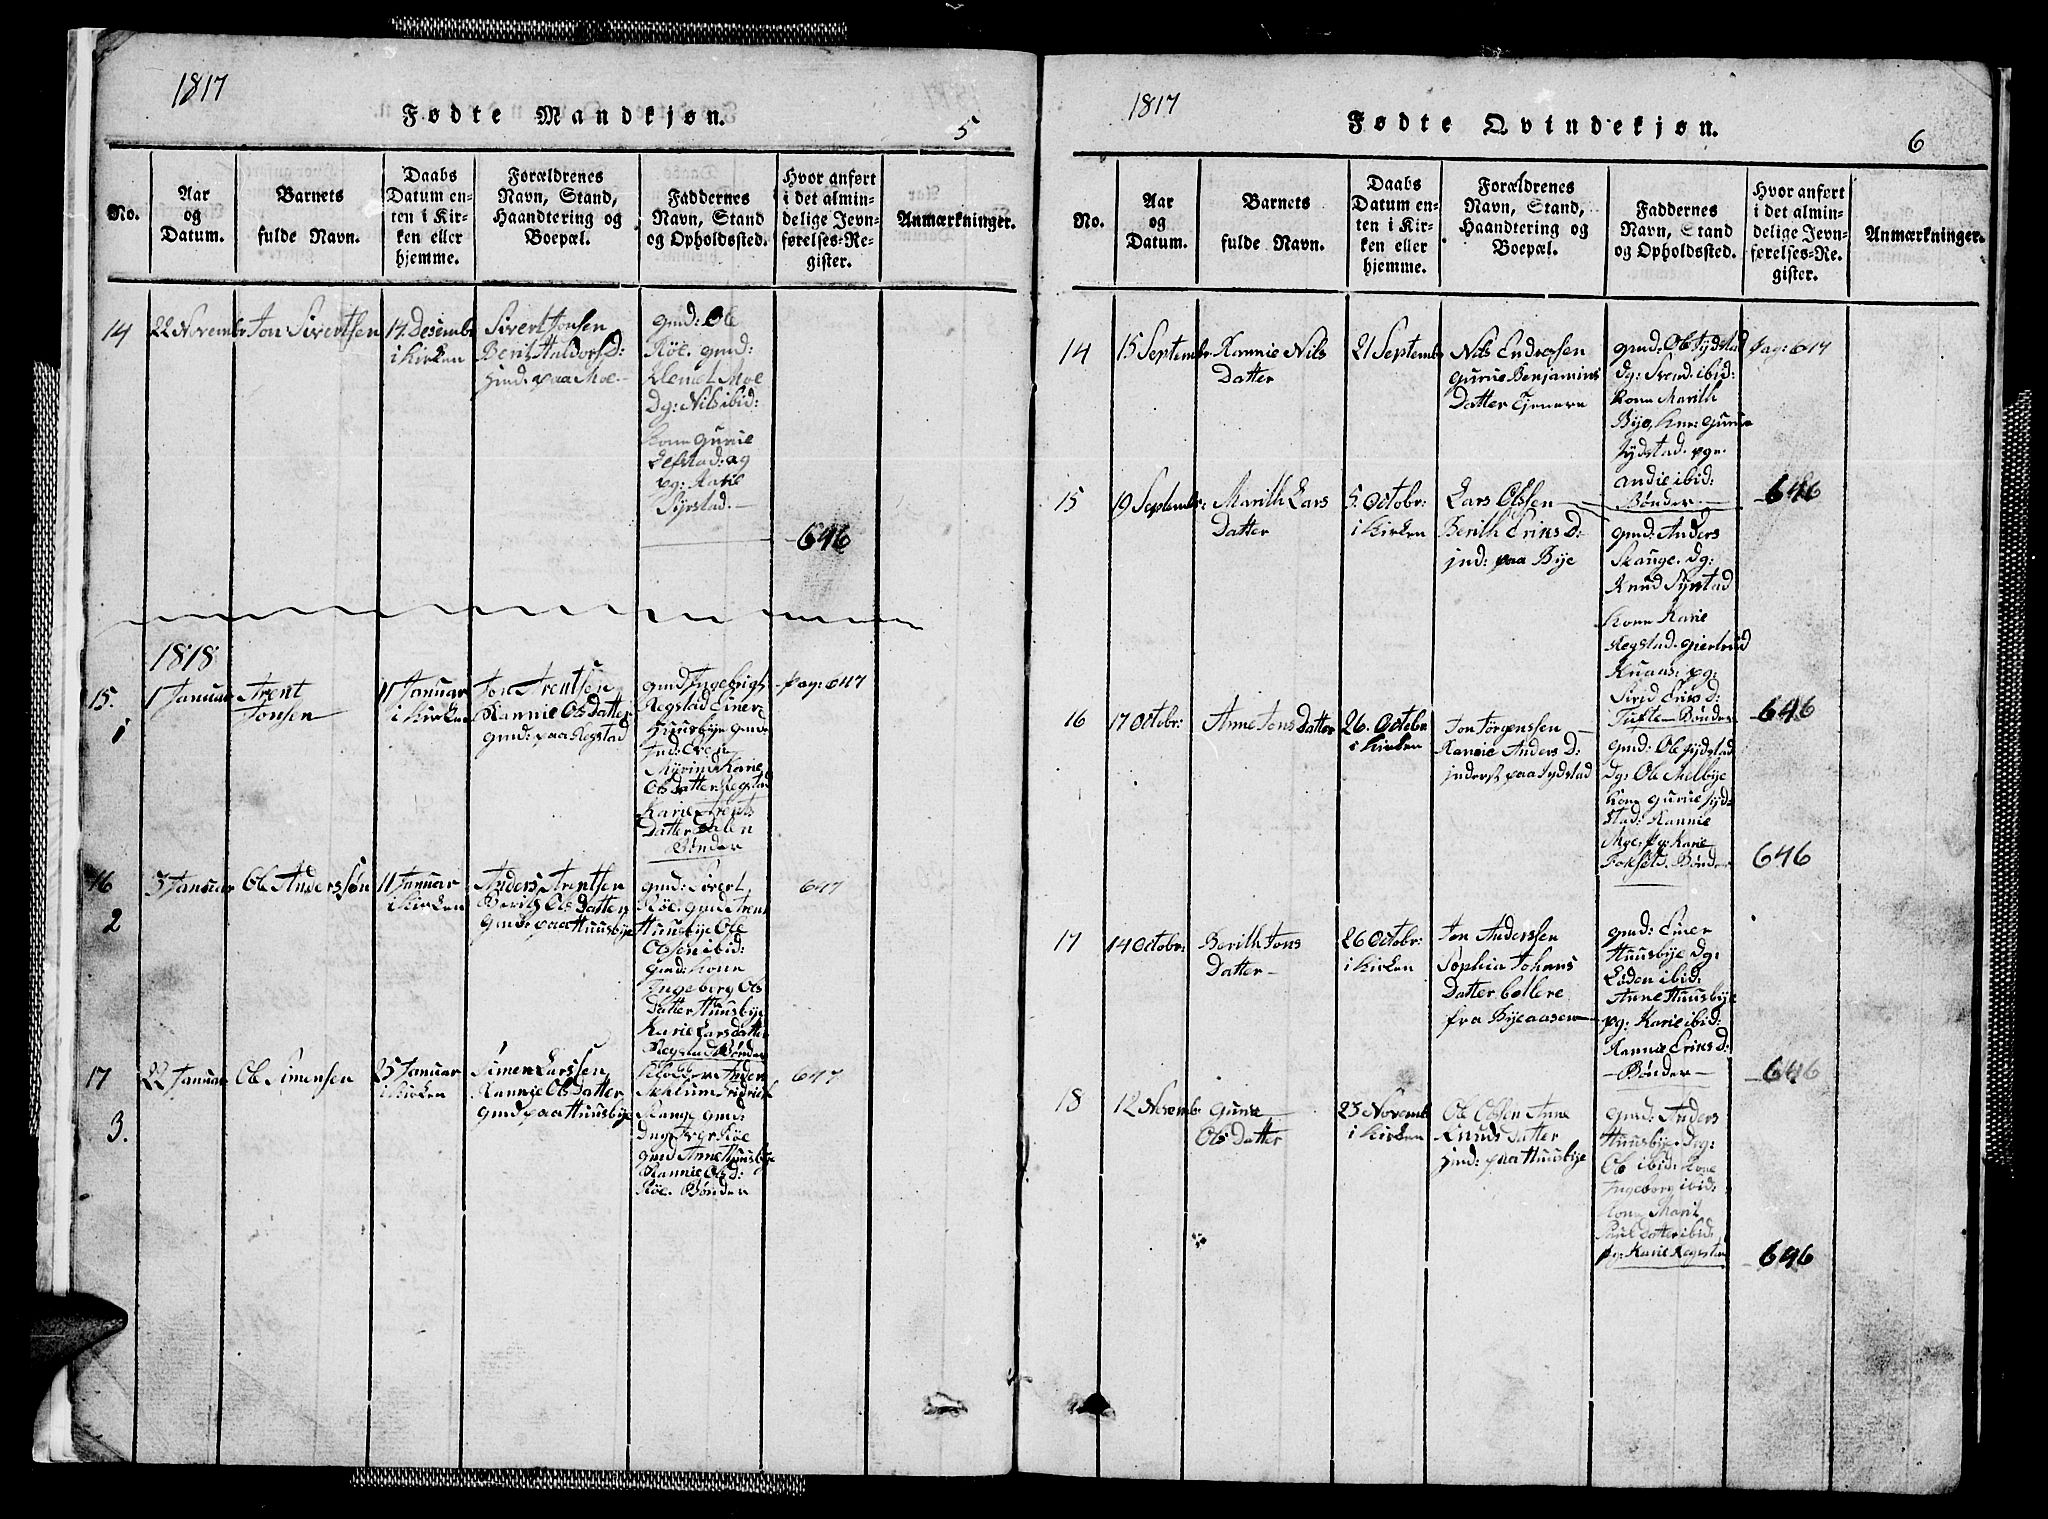 1817
Fødte Mandkjøn.
5
No.
Aar
og
Datum.
Barnets
fulde Navn.
Daabs
Datum en-
ten i Kir-
ken eller
hjemme.
Forældrenes
Navn, Stand,
Haandtering og
Boepæl.
Faddernes
Navn, Stand
og Opholdssted.
Hvor anført
i det almin-
delige Jevn-
førelses-Re-
gister.
Anmærkninger.
14
22 Novembr
Jon Sivertsen
14 Desembr
i Kirken
Sivert Jonsen
Berit Haldorsd:
jnd: paa Moe
gmd: Ole
Röe. gmd:
Moe
Dg: Nils ibid:
Kone Gurue
og
pg: Karie
Syrstad.
646
1818
15.
1
1 Januar
Arent
Jonsen
11 Januar
i Kirken
Jon Arentsen
Rannie Ols Datter
gmd: paa Regstad
gmd Ingebrigt
Regstad Einer
Huusbye gmd
jnd: Sven
Myrind Karie
Ols datter Regstad
Karie Arents
Datter Dalen
Bönder
pag: 647
16
2
3 Januar
Ole Anderssön
11 Januar
i Kirken
Anders Arentsen
Berith Ols Datter
gmd: paa Huusbye
gmd: Sivert
Röe. gmd Arent
Huusbye Ole
Olssen ibid:
gmd: Kone
Ingeborg Ols
Datter Huusbye
Karie Larsdatter
Regstad Bönder
647
17
3.
22 Januar
Ole Simensen
25 Januar
i Kirken
Simen Larssen
Rannie Ols Datter
gmd paa Huusbye
Klokker Anders
Fridrich
gmd:
Röe
gmd Anne Huusbye
Rannie Ols d:
Röe. Bönder
647
1817
Fødte Qvindekjøn.
6
No.
Aar
og
Datum.
Barnets
fulde Navn.
Daabs
Datum en-
ten i Kir-
ken eller
hjemme.
Forældrenes
Navn, Stand,
Haandtering og
Boepæl.
Faddernes
Navn, Stand
og Opholdssted.
Hvor anført
i det almin-
delige Jevn-
førelses-Re-
gister.
Anmærkninger.
14
15 Septembr
Rannie Nils
Datter
21 Septembr
Nils Endresen
Gurue Benjamins
Datter Tjenere
gmd: Ole Jydstad
Dg: Svend ibid:
Kone Marith
Bye, Kne: Gurue
Jydstad. pge.
Andie ibid:
Bönder
pag: 647
15
19 Septembr:
Marith Lars
Datter
5. Octobr:
i Kirken
Lars Olssen
Berith Eriks D:
jnd: paa Bye
gmd: Anders
Skauge. Dg:
Knud Syrstad
Kone Karie
Regstad. Giertrud
Knaas: pg:
Siri Eriks d:
Tufte Bönder
646
16
17 Octobr:
Anne Jons Datter
26. Octobr
i Kirken
Jon Jörgenssen
Rannie Anders D:
jnderst paa Jydstad
gmd: Ole Jydstad
Dg: Ole Melbye
Kone Gurue Jyd-
stad: Rannie
Moe, pg: Karie
Bönder
646
646
17
14 Octobr:
Berith Jons
Datter
26 Octobr:
i Kirken
Jon Anderssen
Sophia Johans
Datter betlere
fra Byeaasen
gmd: Einer
Huusbye Dg:
Eiden ibid:
Anne Huusbye
pg: Karie ibid:
Rannie Eriks d:
Bönder
646
18
12 Novembr
Gurue
Ols Datter
23 Novemb
i Kirken
Ole Olssen Anne
Knuds Datter
jnd: paa Huusbye
gmd: Anders
Huusbye. Dg:
Ole ibid: Kone
Ingeborg ibid:
Kone Marit
Datter ibid:
pg: Karie Regstad
646